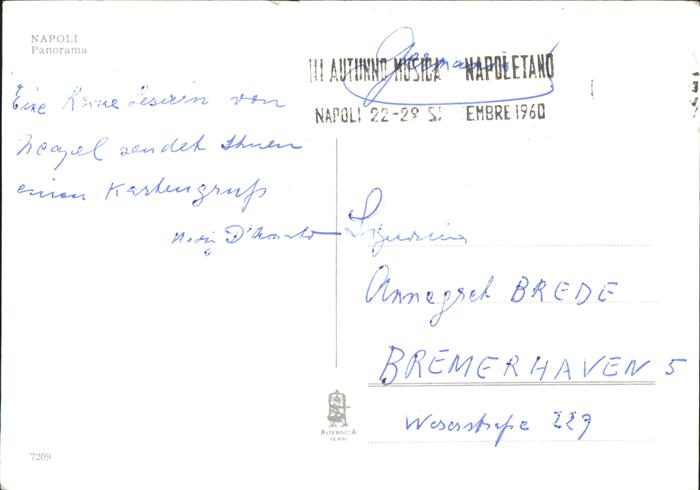 NAPOLI
Panorama
Germania
III AUTUNNO MUSICA NAPOLETANO
NAPOLI 22-29 S EMBRE 1960
Eine kleine Leserin von
Neapel sendet Ihnen
einen Kartengruß
D'Amato
Signorina
Annegret BREDE
BREMERHAVEN 5
Weserstraße 229
ALTEROCCA
TERNI
7209